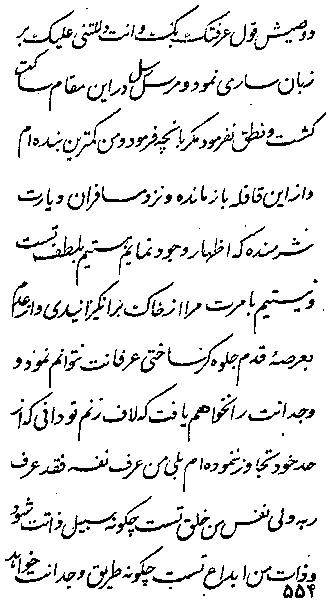 دو وصیش قول عرفتک بک و انت دللتنی علیک بر
زبان ساری نمود و مرسل رسل در این مقام ساکت
گشت و نطق نفرمود مگر بآنچه فرمود و من کمترین بنده ام
و از این قافله باز مانده و نزد مسافران دیارت
شرمنده که اظهار وجود نمایم هستیم بلطف تست
و نیستیم بامرت مرا از خاک برانگیزانیدی و از عدم
بعرصهٔ قدم جلوه گر ساختی عرفانت نتوانم نمود و
وجدانت را نخواهم یافت که لاف زنم تو دانی که از
حد خود تجاوز ننموده ام بلی من عرف نفسه فقد عرف
ربه ولی نفس من خلق تست چگونه سبیل ذاتت شود
و ذات من ابداع تست چگونه طریق وجدانت خواهد
۵۵۴